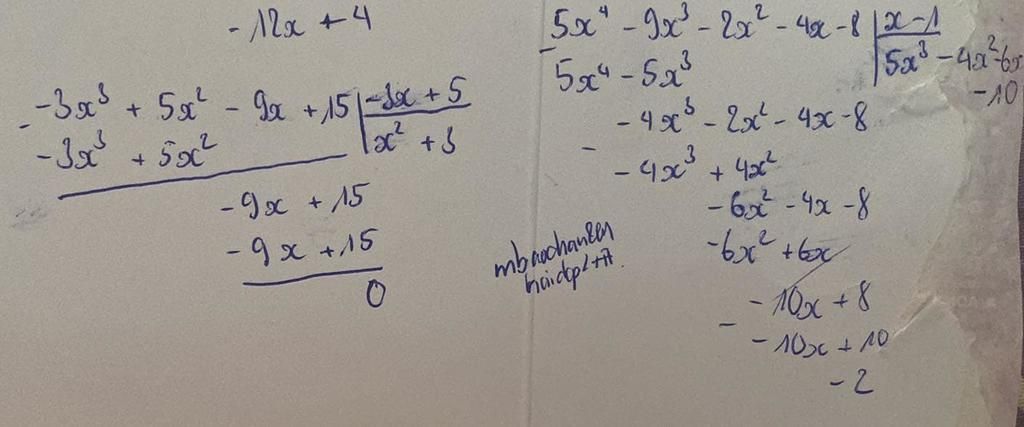 -12x + 4
-3x³ + 5x² - 9x + 15 | -3x + 5
- -3x³ + 5x² | x² + 3
-9x + 15
-9x + 15
0
5x⁴ - 9x³ - 2x² - 4x - 8 | x - 1
- 5x⁴ - 5x³ | 5x³ - 4x² - 6x
-10
-4x³ - 2x² - 4x - 8
- -4x³ + 4x²
-6x² - 4x - 8
-6x² + 6x
-10x + 8
- -10x + 10
-2